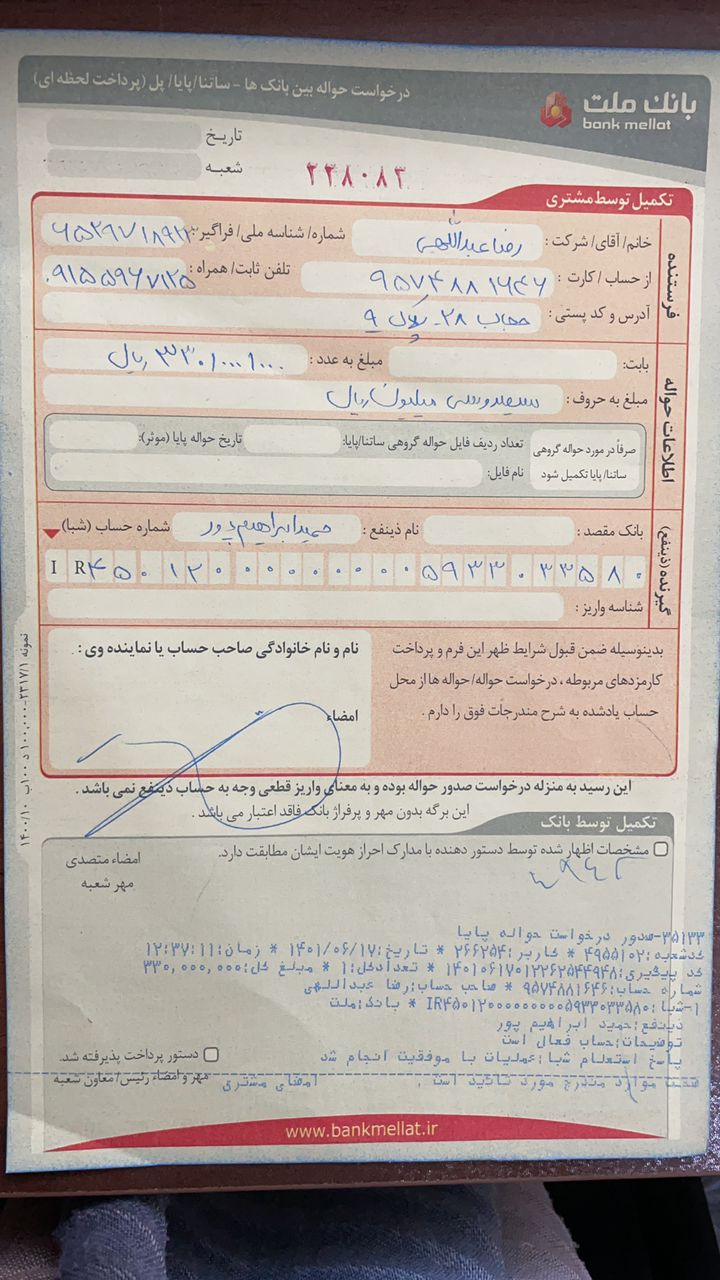 درخواست حواله بین بانک ها - ساتنا/پایا/ پل (پرداخت لحظه ای)
بانک ملت
bank mellat
تاریخ
شعبه
۲۲۸۰۸۳
تکمیل توسط مشتری
فرستنده
خانم/ آقای/ شرکت : رضا عبداللهی شماره/ شناسه ملی/ فراگیر:
از حساب / کارت : ۹۵۷۴۸۸۱۶۴۶ تلفن ثابت/ همراه : ۰۹۱۵۵۹۶۷۱۲۵
آدرس و کد پستی : حجاب ۲۸ - پلاک ۹
اطلاعات حواله
بابت: مبلغ به عدد : ۳۳۰/۰۰۰/۰۰۰ ریال
مبلغ به حروف : سیصد و سی میلیون ریال
صرفاً در مورد حواله گروهی ساتنا/ پایا تکمیل شود
تعداد ردیف فایل حواله گروهی ساتنا/پایا: تاریخ حواله پایا (موثر):
نام فایل:
گیرنده (ذینفع)
بانک مقصد : نام ذینفع : حمید ابراهیم پور شماره حساب (شبا)
IR۴۵۰۱۲۰۰۰۰۰۰۰۰۰۰۵۹۳۳۰۳۳۵۸۰
شناسه واریز :
بدینوسیله ضمن قبول شرایط ظهر این فرم و پرداخت
کارمزدهای مربوطه ، درخواست حواله/ حواله ها از محل
حساب یادشده به شرح مندرجات فوق را دارم .
نام و نام خانوادگی صاحب حساب یا نماینده وی :
امضاء
نمونه ۲۳۱۷/۱-۱۰۰،۰۰۰ د ۱۰۰ب ۱۴۰۰/۱۰
این رسید به منزله درخواست صدور حواله بوده و به معنای واریز قطعی وجه به حساب ذینفع نمی باشد .
این برگه بدون مهر و پرفراژ بانک فاقد اعتبار می باشد .
تکمیل توسط بانک
مشخصات اظهار شده توسط دستور دهنده با مدارک احراز هویت ایشان مطابقت دارد.
امضاء متصدی
مهر شعبه
۳۵۱۳۳-صدور درخواست حواله پایا
کدشعبه:۴۹۵۵۱۰۲ * کاربر :۲۶۶۲۵۴ * تاریخ:۱۴۰۱/۰۶/۱۷ * زمان:۱۲:۳۷:۱۱
کد پیگیری:۱۴۰۱۰۶۱۷۰۱۲۲۶۲۵۴۴۹۴۸ * تعدادکل:۱ * مبلغ کل:۳۳۰,۰۰۰,۰۰۰
شماره حساب:۹۵۷۴۸۸۱۶۴۶ * صاحب حساب:رضا عبداللهی
۱-شبا :IR۴۵۰۱۲۰۰۰۰۰۰۰۰۰۰۵۹۳۳۰۳۳۵۸۰ * بانک:ملت
ذینفع:حمید ابراهیم پور
توضیحات:حساب فعال است
پاسخ استعلام شبا:عملیات با موفقیت انجام شد
صحت موارد مندرج مورد تائید است . امضای مشتری
دستور پرداخت پذیرفته شد.
مهر و امضاء رئیس/ معاون شعبه
www.bankmellat.ir